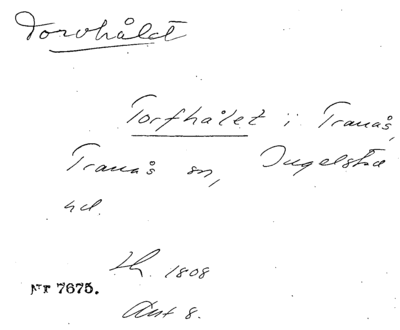 Torvhålet
Torfhålet i Tranås,
Tranås sn, Ingelstad
hd.
Lh. 1808
Nr 7675.
Akt 8.